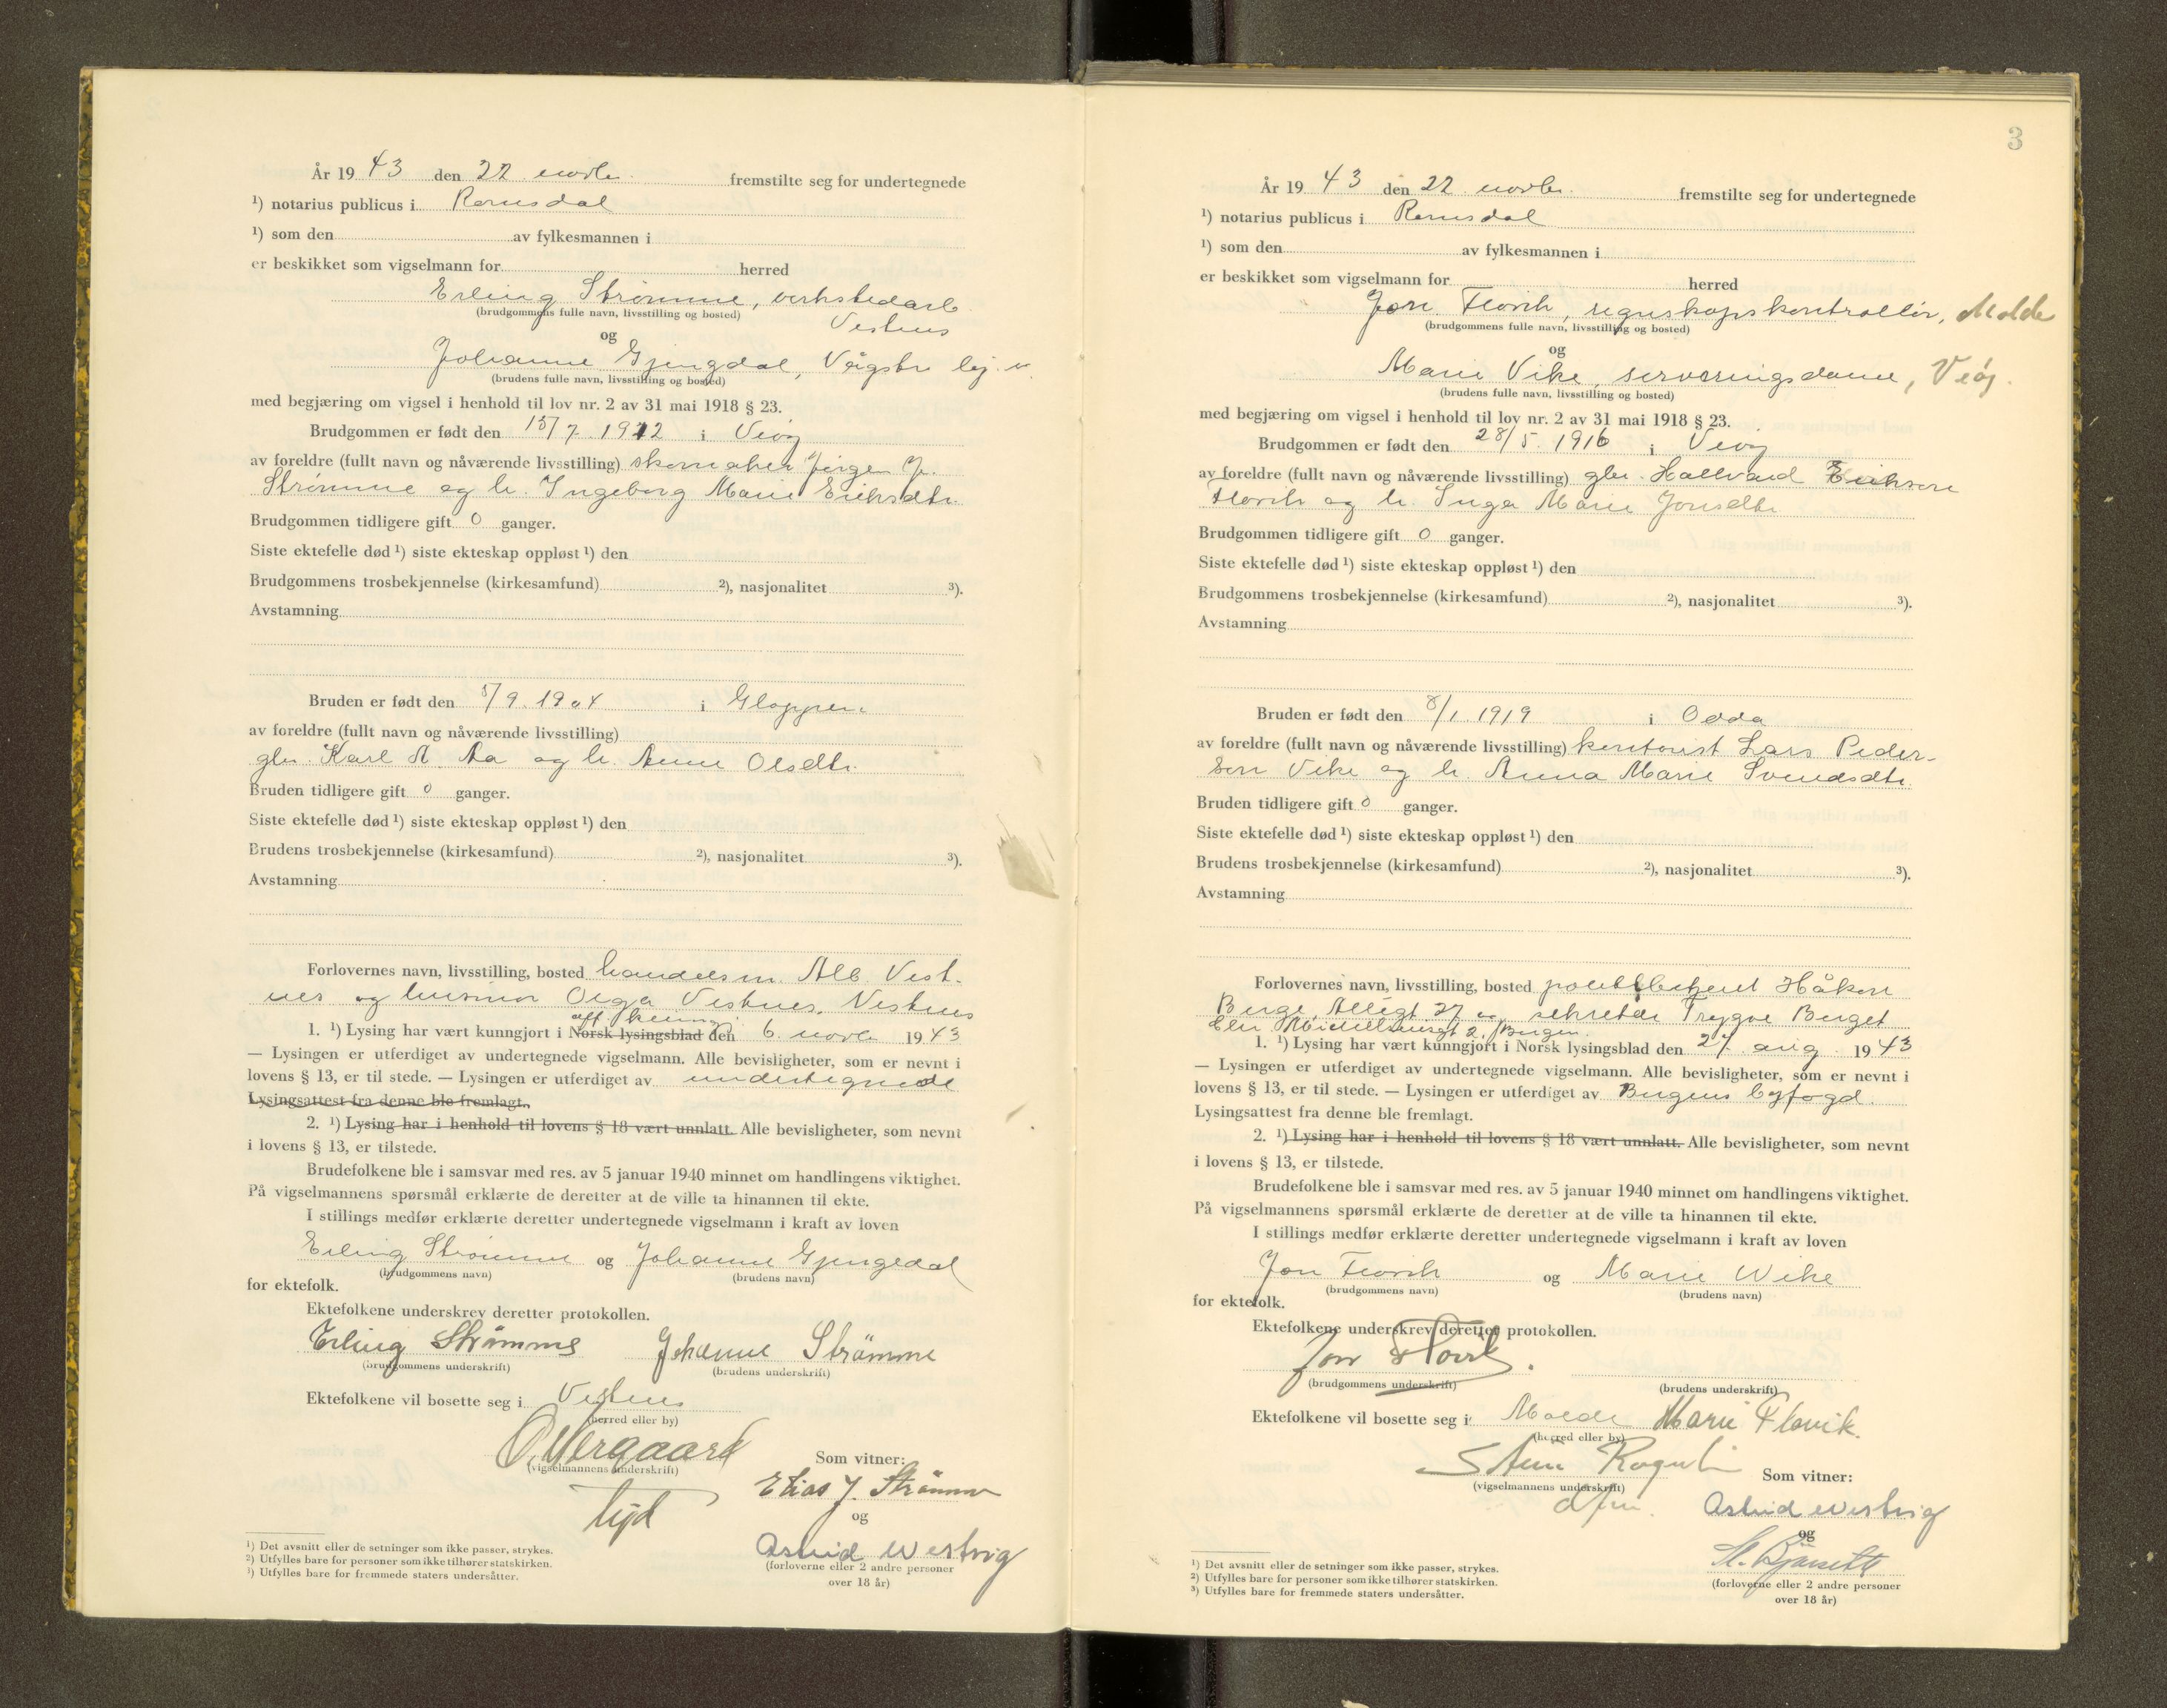 År 19 43 den 22 novbr. fremstilte seg for undertegnede
¹) notarius publicus i Romsdal
¹) som den av fylkesmannen i
er beskikket som vigselmann for herred
Erling Strømme, verkstedarb.
(brudgommens fulle navn, livsstilling og bosted)
Vestnes
og
Johanne Gjengdal,
(brudens fulle navn, livsstilling og bosted)
med begjæring om vigsel i henhold til lov nr. 2 av 31 mai 1918 § 23.
Brudgommen er født den 15/7 1912 i Veøy
av foreldre (fullt navn og nåværende livsstilling) skomaker Jørgen J.
Strømme og h. Ingeborg Marie Eriksdtr.
Brudgommen tidligere gift 0 ganger.
Siste ektefelle død ¹) siste ekteskap oppløst ¹) den
Brudgommens trosbekjennelse (kirkesamfund) ²), nasjonalitet ³).
Avstamning
Bruden er født den /9. 1904 i Gloppen
av foreldre (fullt navn og nåværende livsstilling)
gbr. Karl A. Aa og h. Anne Olsdtr.
Bruden tidligere gift 0 ganger.
Siste ektefelle død ¹) siste ekteskap oppløst ¹) den
Brudens trosbekjennelse (kirkesamfund) ²), nasjonalitet ³).
Avstamning
Forlovernes navn, livsstilling, bosted handelsm. Alb. Vest-
nes og husmor Olga Vestnes, Vestnes
1. ¹) Lysing har vært kunngjort i Norsk lysingsblad den 6. novbr 19 43
— Lysingen er utferdiget av undertegnede vigselmann. Alle bevisligheter, som er nevnt i
lovens § 13, er til stede. — Lysingen er utferdiget av undertegnede
Lysingsattest fra denne ble fremlagt.
2. ¹) Lysing har i henhold til lovens § 18 vært unnlatt. Alle bevisligheter, som nevnt
i lovens § 13, er tilstede.
Brudefolkene ble i samsvar med res. av 5 januar 1940 minnet om handlingens viktighet.
På vigselmannens spørsmål erklærte de deretter at de ville ta hinannen til ekte.
I stillings medfør erklærte deretter undertegnede vigselmann i kraft av loven
Erling Strømme og Johanne Gjengedal
(brudgommens navn) (brudens navn)
for ektefolk.
Ektefolkene underskrev deretter protokollen.
Erling Strømme Johanne Strømme
(brudgommens underskrift) (brudens underskrift)
Ektefolkene vil bosette seg i Vestnes
(herred eller by)
(vigselmannens underskrift)
Som vitner:
Elias J. Strømme
og
Astrid Westvig
(forloverne eller 2 andre personer
over 18 år)
¹) Det avsnitt eller de setninger som ikke passer, strykes.
²) Utfylles bare for personer som ikke tilhører statskirken.
³) Utfylles bare for fremmede staters undersåtter.
3
År 19 43 den 22 novbr. fremstilte seg for undertegnede
¹) notarius publicus i Romsdal
¹) som den av fylkesmannen i
er beskikket som vigselmann for herred
Jon Flovik, regnskapskontrollør, Molde
(brudgommens fulle navn, livsstilling og bosted)
og
Marie Vike, serveringsdame, Veøy.
(brudens fulle navn, livsstilling og bosted)
med begjæring om vigsel i henhold til lov nr. 2 av 31 mai 1918 § 23.
Brudgommen er født den 28/5. 1916 i Veøy
av foreldre (fullt navn og nåværende livsstilling) gbr. Hallvard Erikson
Flovik og h. Inga Marie Jonsdtr.
Brudgommen tidligere gift 0 ganger.
Siste ektefelle død ¹) siste ekteskap oppløst ¹) den
Brudgommens trosbekjennelse (kirkesamfund) ²), nasjonalitet ³).
Avstamning
Bruden er født den 8/1. 1919 i Odda
av foreldre (fullt navn og nåværende livsstilling) kontorist Lars Peder-
sen Vike og h. Anna Marie Svendsdtr.
Bruden tidligere gift 0 ganger.
Siste ektefelle død ¹) siste ekteskap oppløst ¹) den
Brudens trosbekjennelse (kirkesamfund) ²), nasjonalitet ³).
Avstamning
Forlovernes navn, livsstilling, bosted politibetjent Håkon
Berge, Allégt 27 og sekretær Trygve Berget
2, Bergen.
1. ¹) Lysing har vært kunngjort i Norsk lysingsblad den 27. aug. 19 43
— Lysingen er utferdiget av undertegnede vigselmann. Alle bevisligheter, som er nevnt i
lovens § 13, er til stede. — Lysingen er utferdiget av Bergens byfogd.
Lysingsattest fra denne ble fremlagt.
2. ¹) Lysing har i henhold til lovens § 18 vært unnlatt. Alle bevisligheter, som nevnt
i lovens § 13, er tilstede.
Brudefolkene ble i samsvar med res. av 5 januar 1940 minnet om handlingens viktighet.
På vigselmannens spørsmål erklærte de deretter at de ville ta hinannen til ekte.
I stillings medfør erklærte deretter undertegnede vigselmann i kraft av loven
Jon Flovik og Marie Wike
(brudgommens navn) (brudens navn)
for ektefolk.
Ektefolkene underskrev deretter protokollen.
Jon Flovik.
(brudgommens underskrift) (brudens underskrift)
Ektefolkene vil bosette seg i Molde Marie Flovik.
(herred eller by)
(vigselmannens underskrift)
Som vitner:
Astrid Westvig
og
(forloverne eller 2 andre personer
over 18 år)
¹) Det avsnitt eller de setninger som ikke passer, strykes.
²) Utfylles bare for personer som ikke tilhører statskirken.
³) Utfylles bare for fremmede staters undersåtter.